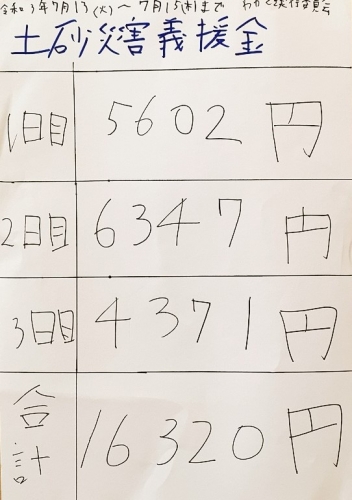 令和3年7月13(火)〜7月15(木)まで
土砂災害義援金
1日目 5602円
2日目 6347円
3日目 4371円
合計 16320円